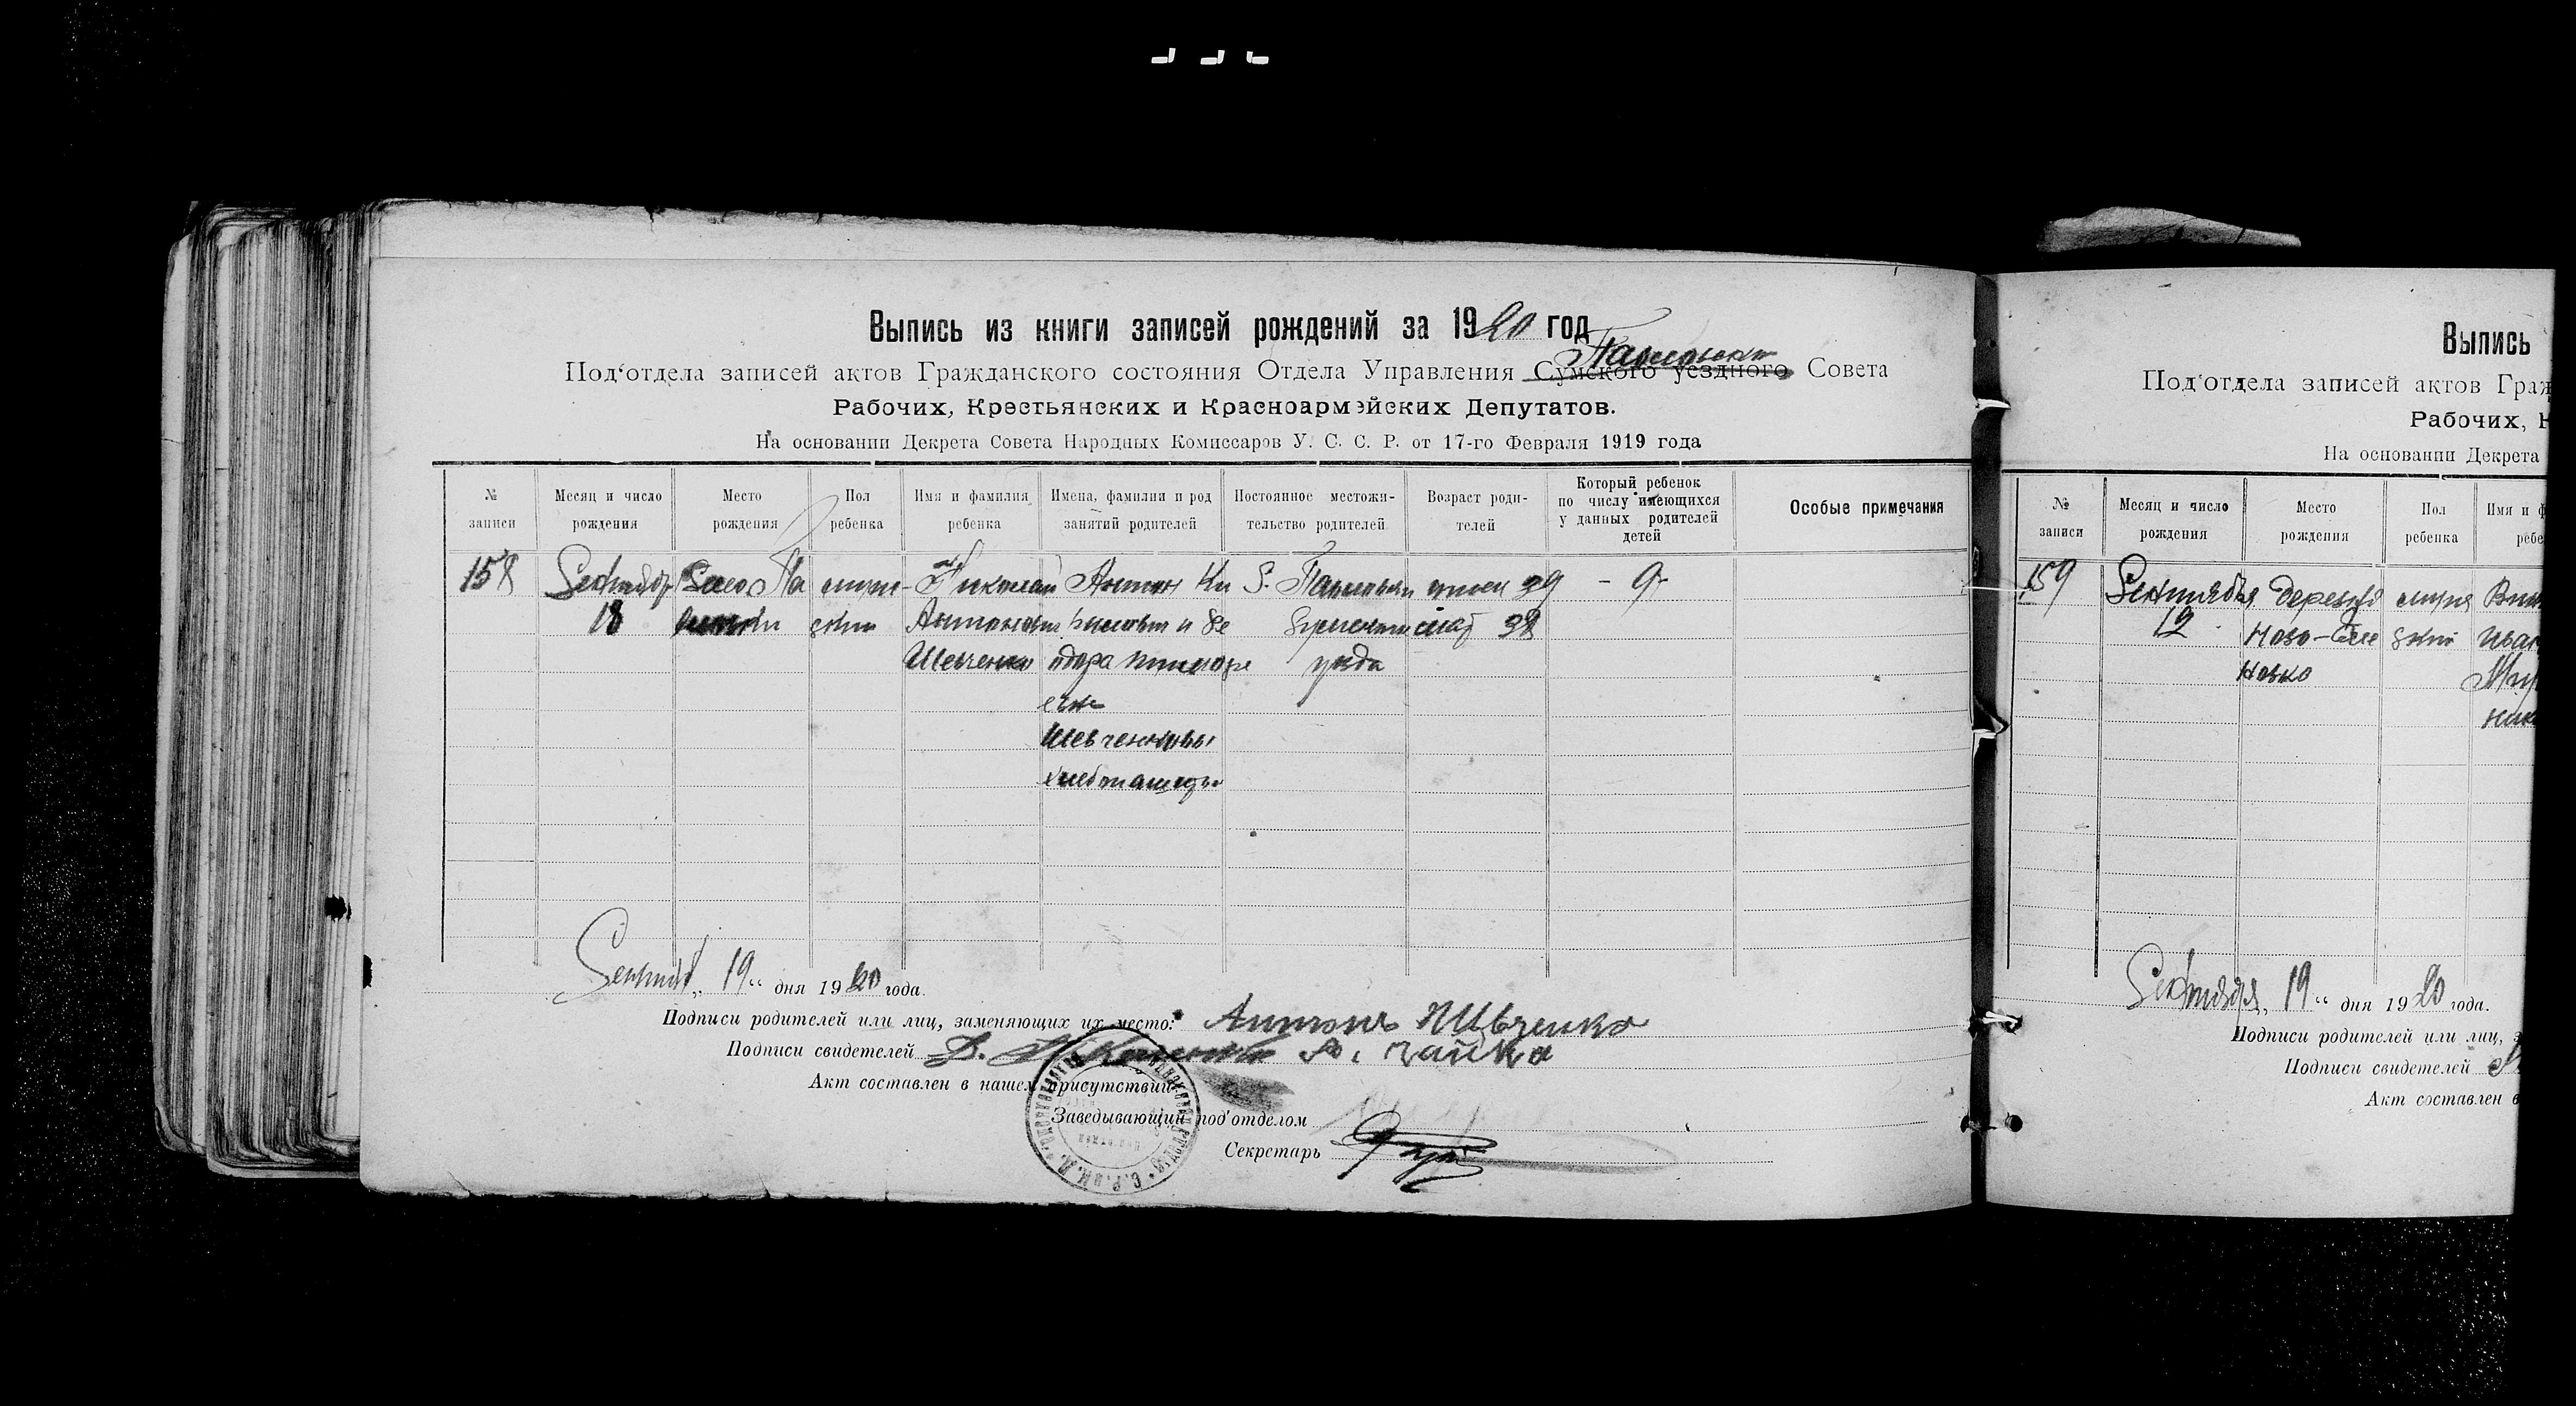 Выпись из книги записей рождений за 1920 год
Под‘отдела записей актов Гражданского состояния Отдела Управления Сумского уездного Совета
Рабочих, Крестьянских и Красноармейских Депутатов.
На основании Декрета Совета Народных Комиссаров У. С. С. Р. от 17-го Февраля 1919 года
№ записи
Месяц и число рождения
Место рождения
Пол ребенка
Имя и фамилия ребенка
Имена, фамилии и род занятий родителей
Постоянное местожительство родителей
Возраст родителей
Который ребенок по числу имеющихся у данных родителей детей
Особые примечания
158
Сентябр
18
Село Па
мужс-
ский
Николай
Антонов
Шевченко
Антон Ки
и Фе
одора
Шевченковы
хлебпашцы
уезда
отец 39
мат 38
- 9-
Сентяб „ 19 “ дня 1920 года.
Подписи родителей или лиц, заменяющих их место: Антонъ Шевченко
Подписи свидетелей Чайка
Акт составлен в нашем присутствии:
Заведывающий под‘отделом
Секретарь
Выпись
Под‘отдела записей актов Граж
Рабочих, К
На основании Декрета
№ записи
Месяц и число рождения
Место рождения
Пол ребенка
Имя и ф
ребе
159
Сентября
12
Деревня
Ново-Сее
новко
мужс
ский
Сентября „ 19 “ дня 1920 года.
Подписи родителей или лиц, з
Подписи свидетелей
Акт составлен в